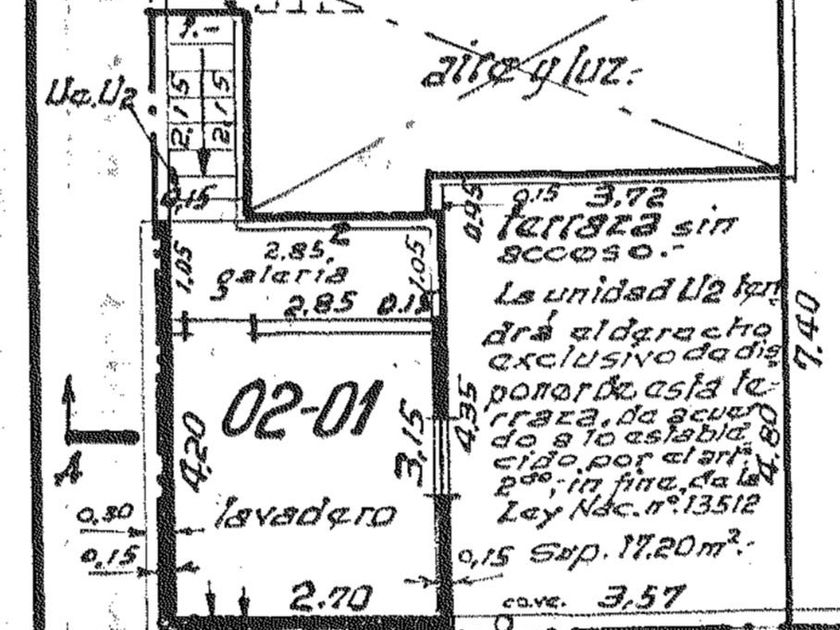 1.-
aire y luz.-
Ua.U2
2.15
2.15
0,15
0.95
0,15
3,72
Terraza sin
acceso.-
2.85.
galeria
1.05
1.05
2,85
0.15
La unidad U2 ten
drá el derecho
exclusivo de dis
poner de esta te-
rraza, de acuer
do a lo estable
cido por el art.
2do; in fine, de la
Ley Nac. nº 13512
Sup. 17.20m².-
7.40
4.80
02-01
4.20
3.15
4.35
A
lavadero
0,30
0.15
0,15
2.70
3,57